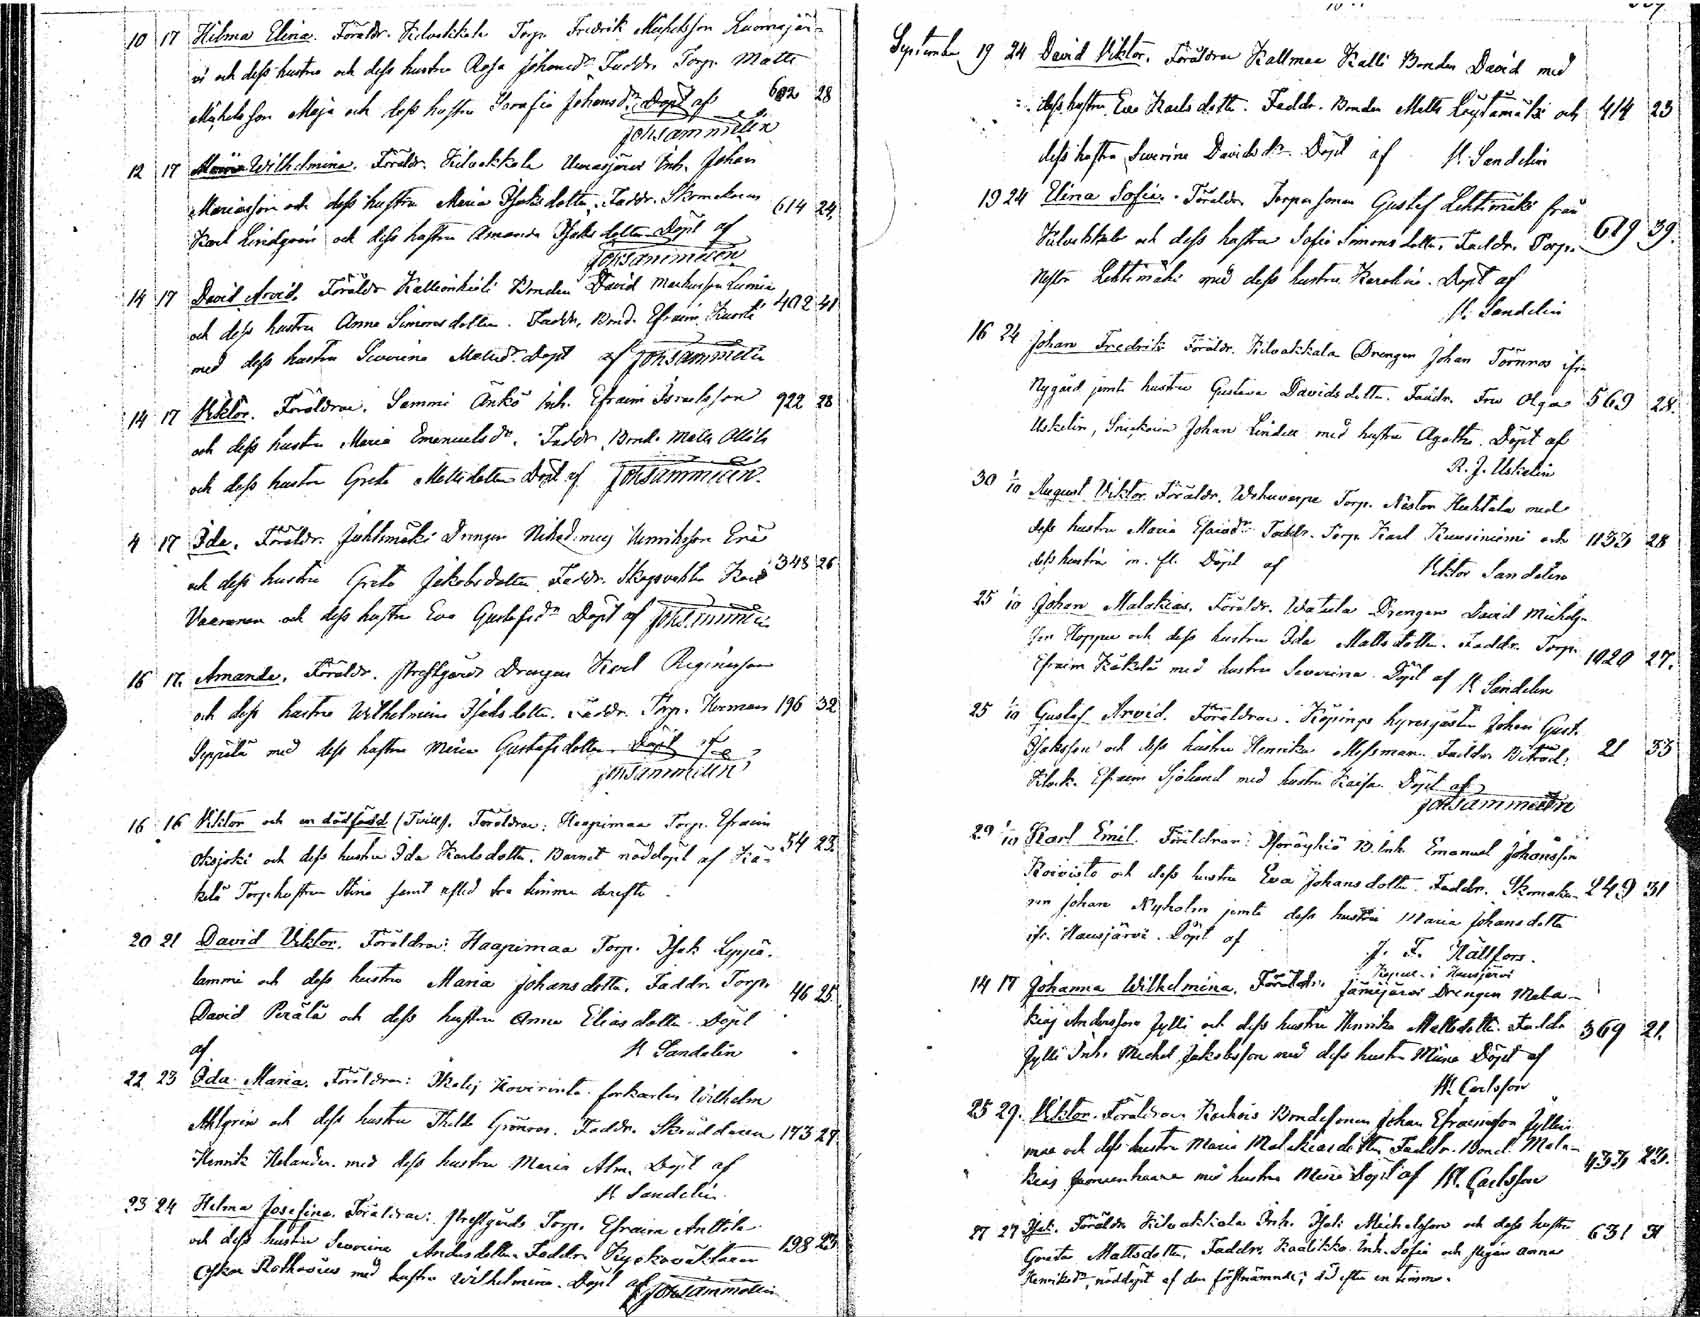 10 17 Hilma Elina. Föräldr. Kilvakkala Torp. Fredrik Michelsson Luomajär-
vi och dess hustru och dess hustru Rosa Johansdr. Faddr. Torp. Matts
Michelsson Maja och dess hustru Serafia Johansdr. Döpt af 602 28
Joh Sammelin
12 17 Wilhelmina. Föräldr. Kilvakkala Inh. Johan
Mariasson och dess hustru Maria Isaksdotter. Faddr. Skomakaren 614 24
Karl Lindgren och dess hustru Amanda Isaksdotter Döpt af
Joh Sammelin
14 17 David Arvid. Föräldr. Bonden David
och dess hustru Anna Simonsdotter. Faddr. Bond. Efraim 402 41
med dess hustru Severina Mattsdr. Döpt af Joh Sammelin
14 17 Viktor. Föräldrar. Sammi Inh. Efraim Israelsson 922 28
och dess hustru Maria Emanuelsdr. Faddr. Bond. Matts
och dess hustru Greta Mattsdotter Döpt af Joh Sammelin.
4 17 Ida. Föräldr. Juhtimäki Drengen Nikodemus Henriksson
och dess hustru Greta Jakobsdotter. Faddr. Skogsvakten Karl 348 26
Vaaranen och dess hustru Eva Gustafsdr. Döpt af Joh Sammelin
16 17. Amanda. Föräldr. Prestgårds Drengen Karl
och dess hustru Wilhelmina Isaksdotter. Faddr. Torp. Herman 196 32
Seppälä med dess hustru Gustafsdotter. Döpt af
Joh Sammelin
16 16 Viktor och en dödfödd (Tvill). Föräldrar: Haapimaa Torp. Efraim
Oksjoki och dess hustru Ida Karlsdotter. Barnet nöddöpt af Kä- 54 23.
kelä Torp.hustrun Stina samt afled tre timmar derefter.
20 21 David Viktor. Föräldrar: Haapimaa Torp. Isak Leppä-
lammi och dess hustru Maria Johansdotter. Faddr. Torp. 46 25.
David Perälä och dess hustru Anna Eliasdotter. Döpt
af Sandelin
22 23 Ida Maria. Föräldrar: forkarlen Wilhelm
Ahlgren och dess hustru Thilda Grönroos. Faddr. Skräddaren 173 27.
Henrik Helander med dess hustru Maria Alm. Döpt af
Sandelin.
23 24 Helma Josefina. Föräldrar: Prestgårds Torp. Efraim Anttila
och dess hustru Severina Andersdotter. Faddr. Kyrkoväktaren 198 23
Oskar Rothovius med hustru Wilhelmina. Döpt af Joh Sammelin
September 19 24 David Viktor. Föräldrar Kallmaa Kalli Bonden David med
dess hustru Eva Karlsdotter. Faddr. Bonden Matts Löytämäki och 414 23
dess hustru Severina Davidsdr. Döpt af Sandelin
19 24 Elina Sofia. Föräldr. Torparsonen Gustaf Lehtimäki från
Kilvakkala och dess hustru Sofia Simonsdotter. Faddr. Torp. 619 39.
Nestor Lehtimäki med dess hustru Karolina. Döpt af
Sandelin
16 24 Johan Fredrik Föräldr. Kilvakkala Drengen Johan Törnroos ifr.
Nygård jemte hustru Gustava Davidsdotter. Faddr. Fru Olga 569 28.
Uskelin, Snickaren Johan Linden med hustru Agatha. Döpt af
R. J. Uskelin
30 1/10 August Viktor. Föräldr. Torp. Nestor Huhtala med
dess hustru Maria Faddr. Torp. Karl Kuusiniemi och 1133 28
dess hustru m. fl. Döpt af Viktor Sandelin
25 1/10 Johan Malakias. Föräldr. Watula Drengen David Michels-
son Hoppu och dess hustru Ida Mattsdotter. Faddr. Torp. 1020 27.
Efraim Käkelä med hustru Severina. Döpt af Sandelin
25 1/10 Gustaf Arvid. Föräldrar. Köpings hyresgästen Johan Gust.
Isaksson och dess hustru Henrika Messman. Faddr. Biträd. 21 33
Klock. Efraim Sjölund med hustru Kaisa. Döpt af
Joh Sammelin
29 1/10 Karl Emil. Föräldrar: B. Inh. Emanuel Johansson
Koivisto och dess hustru Eva Johansdotter. Faddr. Skomaka- 249 31
ren Johan Nyholm jemte dess hustru Maria Johansdotter
ifr. Hausjärvi. Döpt af J. F. Hällfors.
Kapel. i Hausjärvi
14 17 Johanna Wilhelmina. Föräldr. Jämijärvi Drengen Mala-
kias Andersson Jylli och dess hustru Henrika Mattsdotter. Faddr. 369 21.
Jylli Inh. Michel Jakobsson med dess hustru Miina Döpt af
W. Carlsson
25 29. Viktor. Föräldrar Bondesonen Johan Efraimsson Jyllin-
maa och dess hustru Maria Malakiasdotter. Faddr. Bond. Mala- 433 23.
kias med hustru Döpt af W. Carlsson
27 27 Isak. Föräldr. Kilvakkala Inh. Isak Michelsson och dess hustru 631 31
Greta Mattsdotter. Faddr. Inh. Sofia och pigan Anna
Henriksdr. nöddöpt af den förstnämnde; död efter en timme.